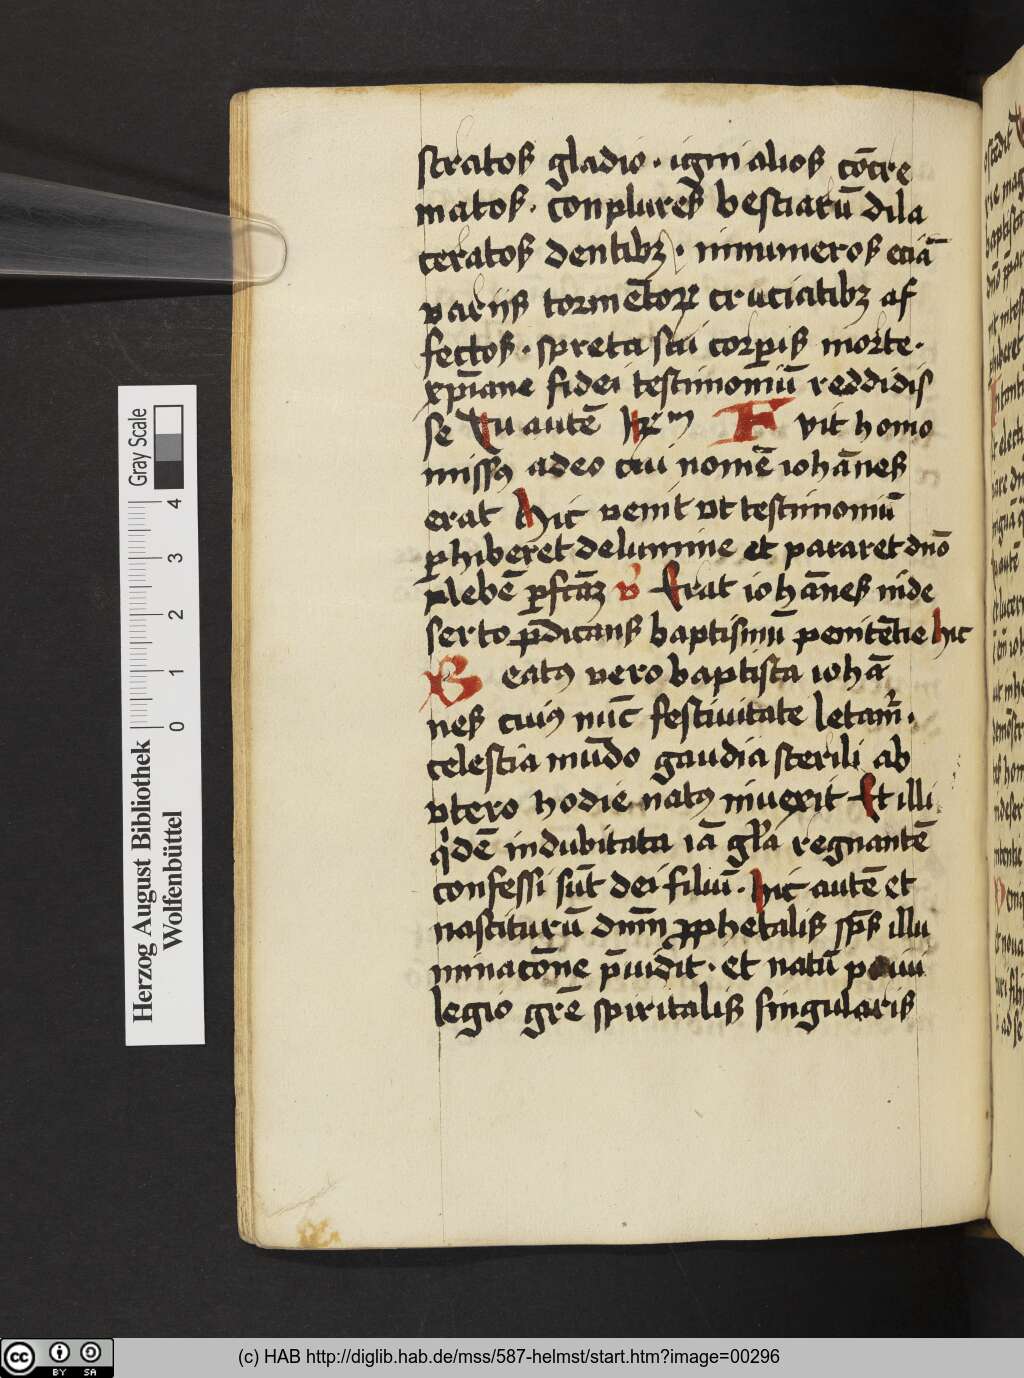 stratos gladio · igni alios co͞cre
matos · conplures bestiarū dila
ceratos dentibꝫ · innumeros eciā
varijs tormētoꝝ cruciatibꝫ af
fectos · spreta sui corꝑis morte ·
xp̄iane fidei testimoniū reddidis
se Tu autē Rᵐ Fvit homo
missꝰ a deo cui nomē iohānes
erat Hic venit vt testimoniū
ꝑhiberet de lumine et pararet dn̄o
plebē ꝑfctāꝫ v̓ Erat iohānes in de
serto p̄dicans baptismū penitētie hic
Beatꝰ vero baptista iohā
nes cuiꝰ nūc festiuitate letam̄ ·
celestia mūdo gaudia sterili ab
vtero hodie natꝰ inuexit Et illi
qͥdē indubitata iā gl̄a regnantē
confessi sūt dei filiū · hic autē et
nasciturū dnm̄ ꝓphetalis sp̄s illu
minacōne p̄uidit · et natū pͥui
legio gr̄e spiritalis singularis
Gray Scale
0 1 2 3 4
Herzog August Bibliothek
Wolfenbüttel
cc BY SA
(c) HAB http://diglib.hab.de/mss/587-helmst/start.htm?image=00296